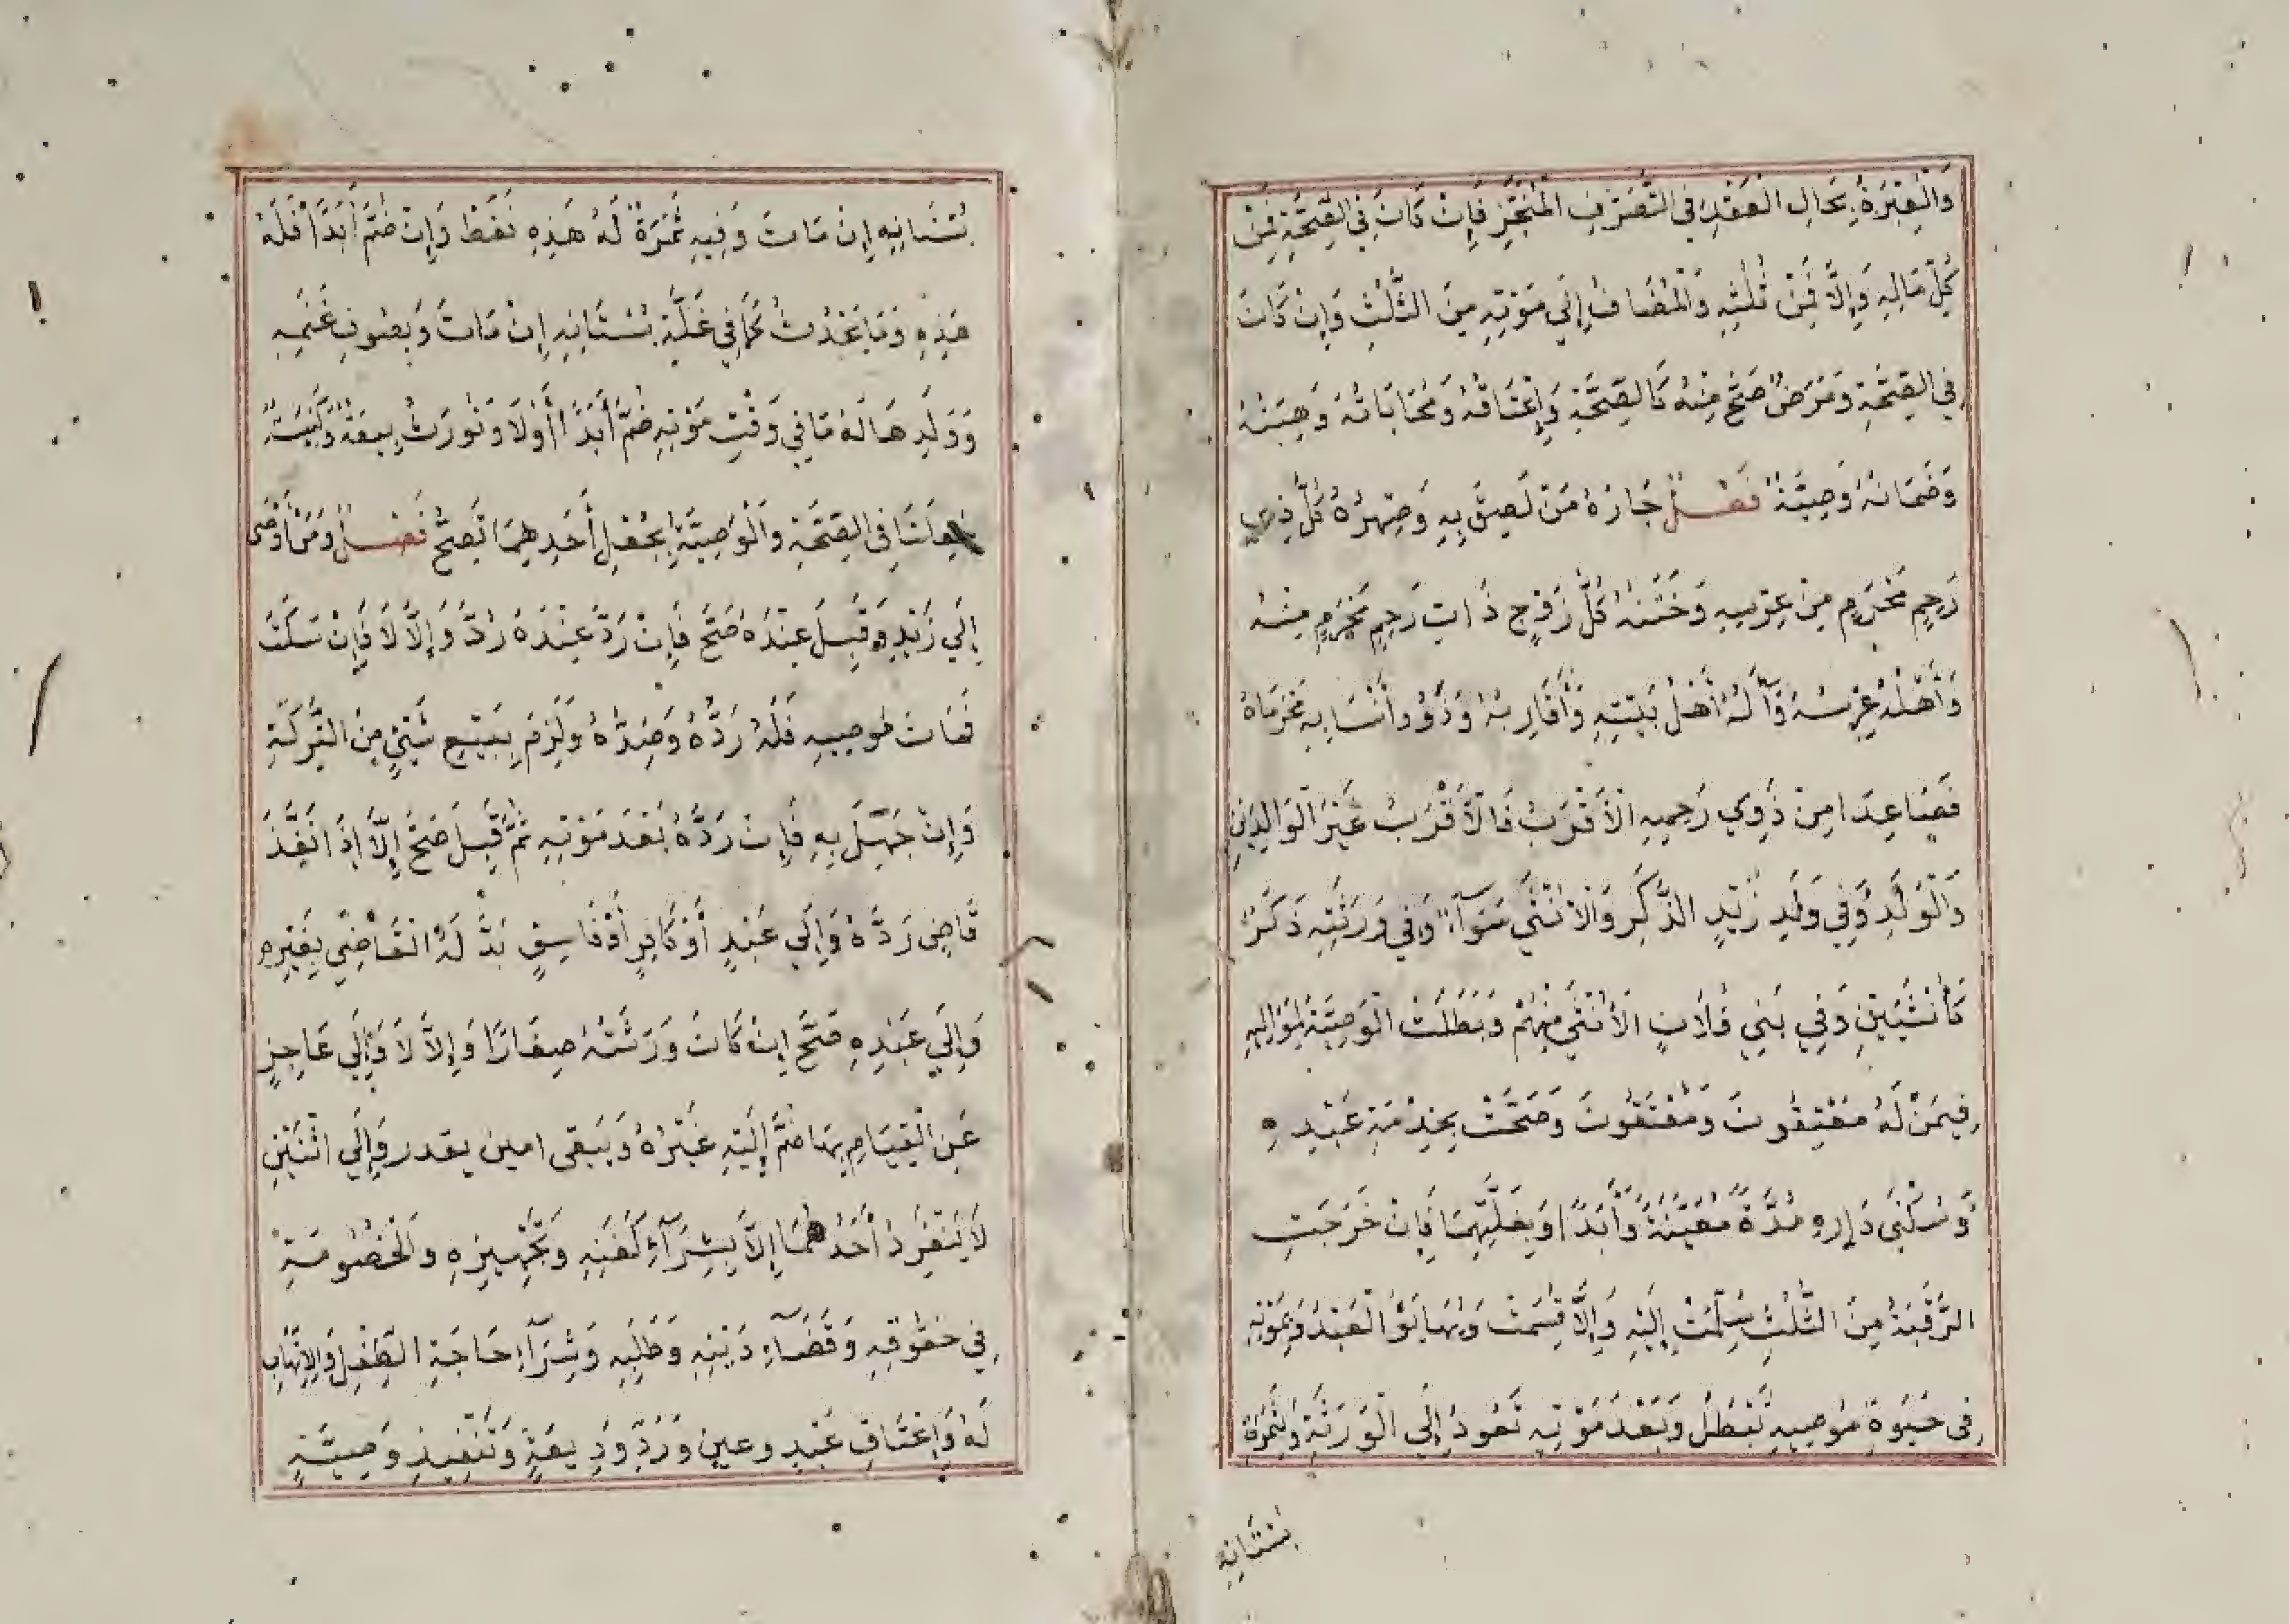 وَالْعِبْرَةُ بِحَالِ الْعَقْدِ فِي التَّصَرُّفِ الْمُنَجَّزِ فَإِنْ كَانَ فِي الصِّحَّةِ فَمِنْ
كُلِّ مَالِهِ وَإِلَّا فَمِنْ ثُلُثِهِ وَالْمُضَافُ إِلَى مَوْتِهِ مِنَ الثُّلُثِ وَإِنْ كَانَ
فِي الصِّحَّةِ وَمَرَضٌ صَحَّ مِنْهُ كَالصِّحَّةِ وَإِعْتَاقُهُ وَمُحَابَاتُهُ وَهِبَتُهُ
وَضَمَانُهُ وَصِيَّةٌ فَصْلٌ جَارُهُ مَنْ لَصِقَ بِهِ وَصِهْرُهُ كُلُّ ذِي
رَحِمٍ مَحْرَمٍ مِنْ عِرْسِهِ وَخَتَنُهُ كُلُّ زَوْجِ ذَاتِ رَحِمٍ مَحْرَمٍ مِنْهُ
وَأَهْلُهُ عِرْسُهُ وَآلُهُ أَهْلُ بَيْتِهِ وَأَقَارِبُهُ وَذَوُو أَنْسَابِهِ مَحْرَمَاهُ
فَصَاعِدًا مِنْ ذَوِي رَحِمِهِ الْأَقْرَبُ فَالْأَقْرَبُ غَيْرَ الْوَالِدَيْنِ
وَالْوَلَدِ وَفِي وَلَدِ زَيْدٍ الذَّكَرِ وَالْأُنْثَى سَوَآءٌ وَفِي وَرَثَتِهِ ذَكَرٌ
كَأُنْثَيَيْنِ وَفِي بَنِي فُلَانٍ الْأُنْثَى مِنْهُمْ وَبَطَلَتْ الْوَصِيَّةُ لِمَوَالِيهِ
فِيمَنْ لَهُ مُعْتِقُونَ وَمُعْتَقُونَ وَصَحَّتْ بِخِدْمَةِ عَبْدِهِ
وَسُكْنَى دَارِهِ مُدَّةً مُعَيَّنَةً وَأَبَدًا وَبِغَلَّتِهِمَا فَإِنْ خَرَجَتِ
الرَّقَبَةُ مِنَ الثُّلُثِ سُلِّمَتْ إِلَيْهِ وَإِلَّا قُسِمَتْ وَتَهَايَؤُا الْعَبْدَ وَبِمَوْتِهِ
فِي حَيٰوةِ مُوصِيهِ تَبْطُلُ وَبَعْدَ مَوْتِهِ تَعُودُ إِلَى الْوَرَثَةِ وَبِثَمَرَةِ
بُسْتَانِهِ
بُسْتَانِهِ إِنْ مَاتَ وَفِيهِ ثَمَرَةٌ لَهُ هَذِهِ فَقَطْ وَإِنْ ضَمَّ أَبَدًا فَلَهُ
هَذِهِ وَمَا يَحْدُثُ كَمَا فِي غَلَّةِ بُسْتَانِهِ إِنْ مَاتَ وَبِصُوفِ غَنَمِهِ
وَوَلَدِهَا لَهُ مَا فِي وَقْتِ مَوْتِهِ ضَمَّ أَبَدًا أَوْ لَا وَتُورَثُ بِيعَةٌ وَكَنِيسَةٌ
جُعِلَتَا فِي الصِّحَّةِ وَالْوَصِيَّةُ بِجُعْلِ أَحَدِهِمَا تَصِحُّ فَصْلٌ وَمَنْ أَوْصَى
إِلَى زَيْدٍ وَقَبِلَ عِنْدَهُ صَحَّ فَإِنْ رَدَّ عِنْدَهُ رُدَّ وَإِلَّا لَا فَإِنْ سَكَتَ
فَمَاتَ مُوصِيهِ فَلَهُ رَدُّهُ وَضِدُّهُ وَلَزِمَ بِبَيْعِ شَيْءٍ مِنَ التَّرِكَةِ
وَإِنْ جَهِلَ بِهِ فَإِنْ رَدَّهُ بَعْدَ مَوْتِهِ ثُمَّ قَبِلَ صَحَّ إِلَّا إِذَا نَفَّذَ
قَاضٍ رَدَّهُ وَإِلَى عَبْدٍ أَوْ كَافِرٍ أَوْ فَاسِقٍ بَدَّلَهُ الْقَاضِي بِغَيْرِهِ
وَإِلَى عَبْدِهِ صَحَّ إِنْ كَانَ وَرَثَتُهُ صِغَارًا وَإِلَّا لَا وَإِلَى عَاجِزٍ
عَنِ الْقِيَامِ بِهَا ضَمَّ إِلَيْهِ غَيْرُهُ وَيَبْقَى امين يقدر وَإِلَى اثْنَيْنِ
لَا يَنْفَرِدُ أَحَدُهُمَا إِلَّا بِشِرَآءِ كَفَنِهِ وَتَجْهِيزِهِ وَالْخُصُومَةِ
فِي حُقُوقِهِ وَقَضَآءِ دَيْنِهِ وَطَلَبِهِ وَشِرَآءِ حَاجَةِ الطِّفْلِ وَالْاِتِّهَابِ
لَهُ وَإِعْتَاقِ عَبْدٍ وعين وَرَدِّ وَدِيعَةٍ وَتَنْفِيذِ وَصِيَّةٍ